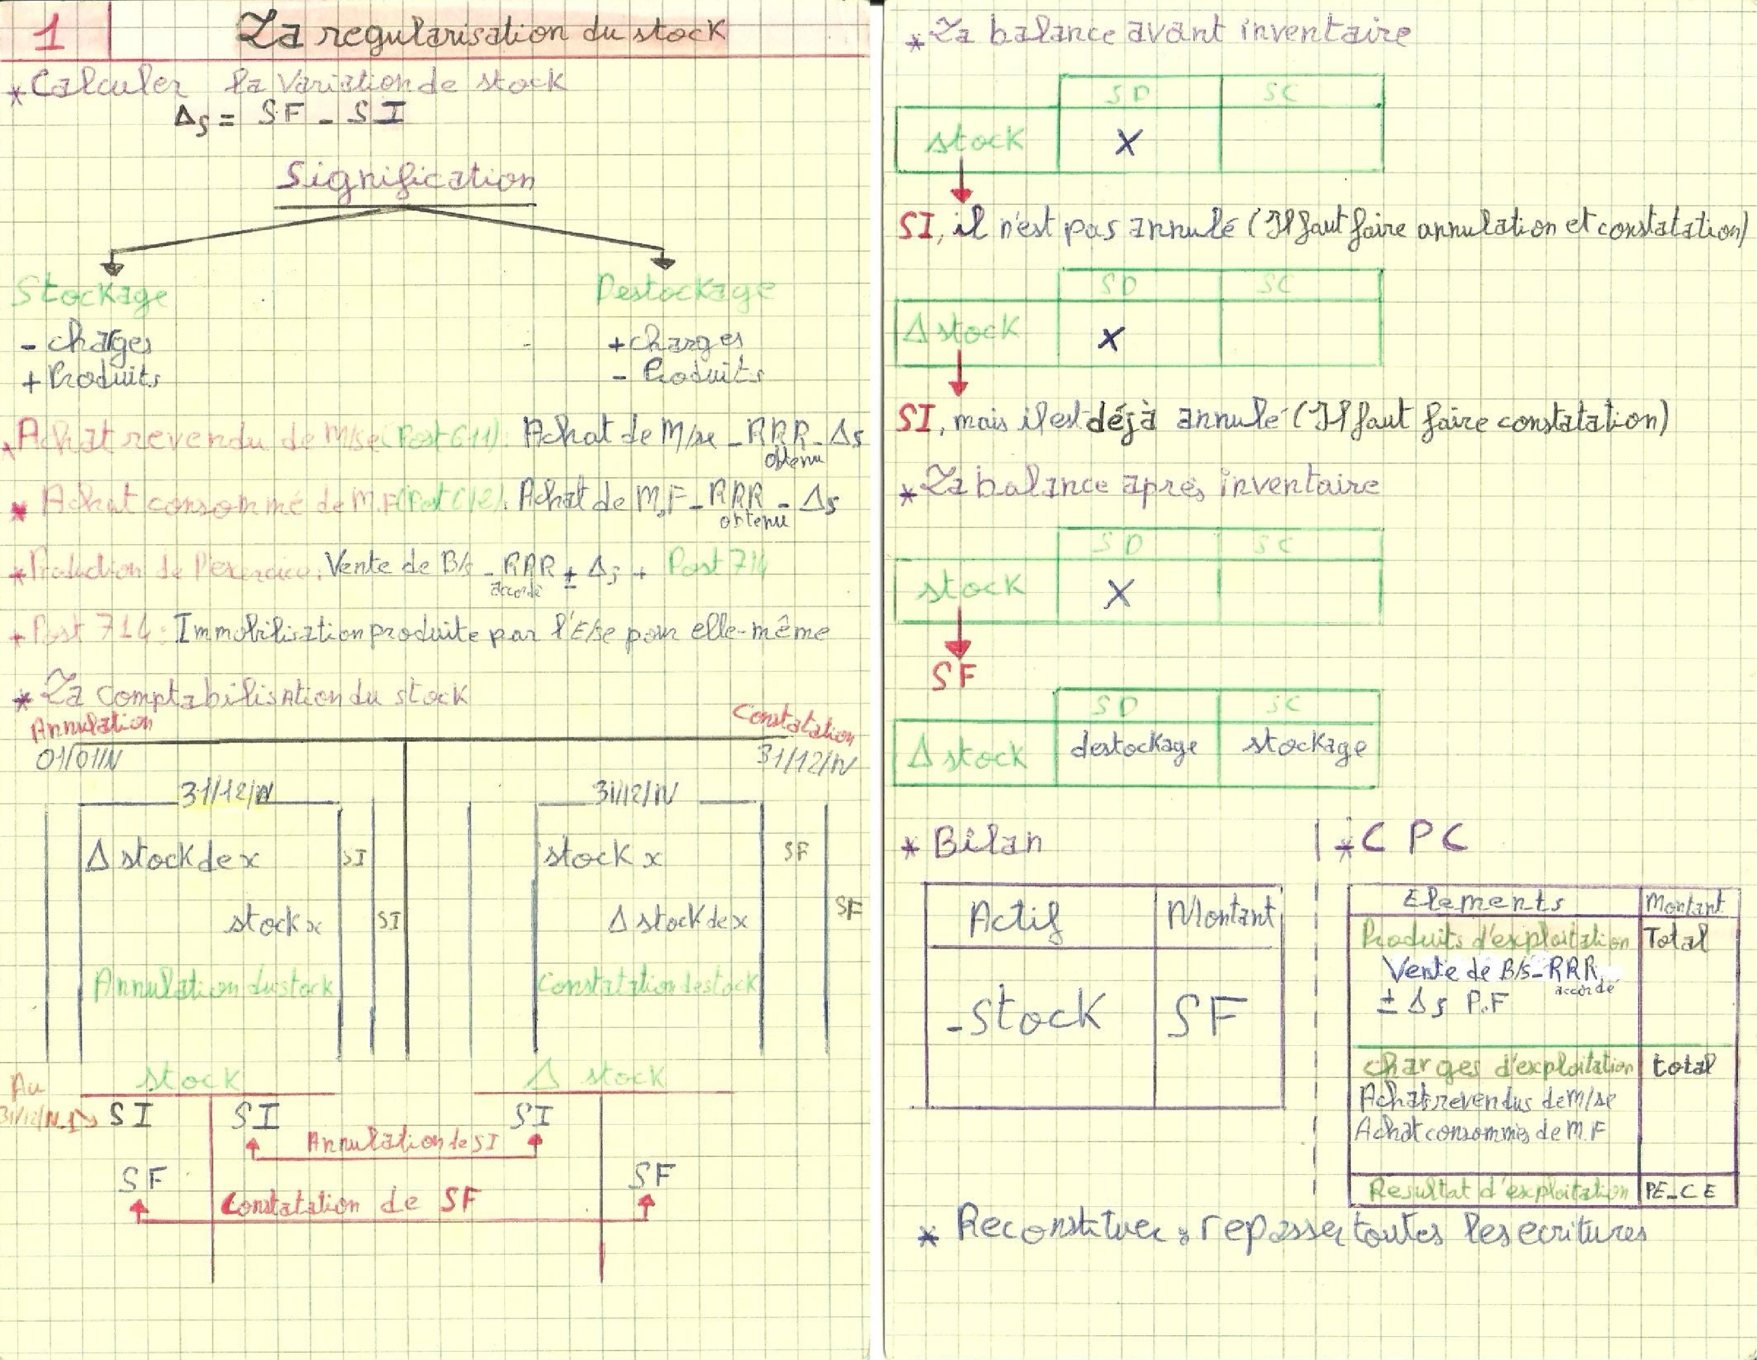 1 La regularisation du stock
* Calculer la Variation de stock
Δs = SF - SI
Signification
Stockage Destockage
- charges + charges
+ Produits - Produits
* Achat revendu de M/se (Post 611): Achat de M/se - RRR obtenu - Δs
* Achat consommé de M.F (Post 612): Achat de M.F - RRR obtenu - Δs
* Production de l'exercice: Vente de B/s - RRR accordé ± Δs + Post 714
+ Post 714: Immobilisation produite par l'E/se pour elle-même
* La comptabilisation du stock
Annulation Constatation
01/01/N 31/12/N
31/12/N 31/12/N
Δ stock de x SI stock x SF
stock x SI Δ stock de x SF
Annulation du stock Constatation de stock
stock Δ stock
Au 31/12/N-1 SI SI SI
Annulation de SI
SF SF
Constatation de SF
* La balance avant inventaire
SD SC
stock X
SI, il n'est pas annulé (Il faut faire annulation et constatation)
SD SC
Δ stock X
SI, mais il est déjà annulé (Il faut faire constatation)
* La balance après inventaire
SD SC
stock X
SF
SD SC
Δ stock destockage stockage
* Bilan
Actif Montant
- Stock SF
* C P C
Elements Montant
Produits d'exploitation Total
Vente de B/s - RRR accordé
± Δs P.F
charges d'exploitation total
Achats revendus de M/se
Achat consommés de M.F
Resultat d'exploitation PE - CE
* Reconstituer : repasser toutes les ecritures